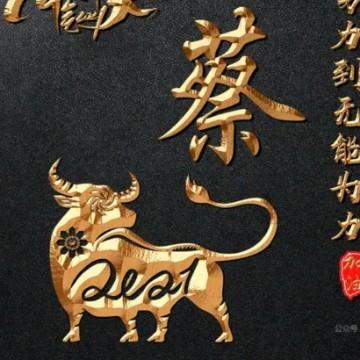 蔡
力到无能为力
2021
加油
公众号